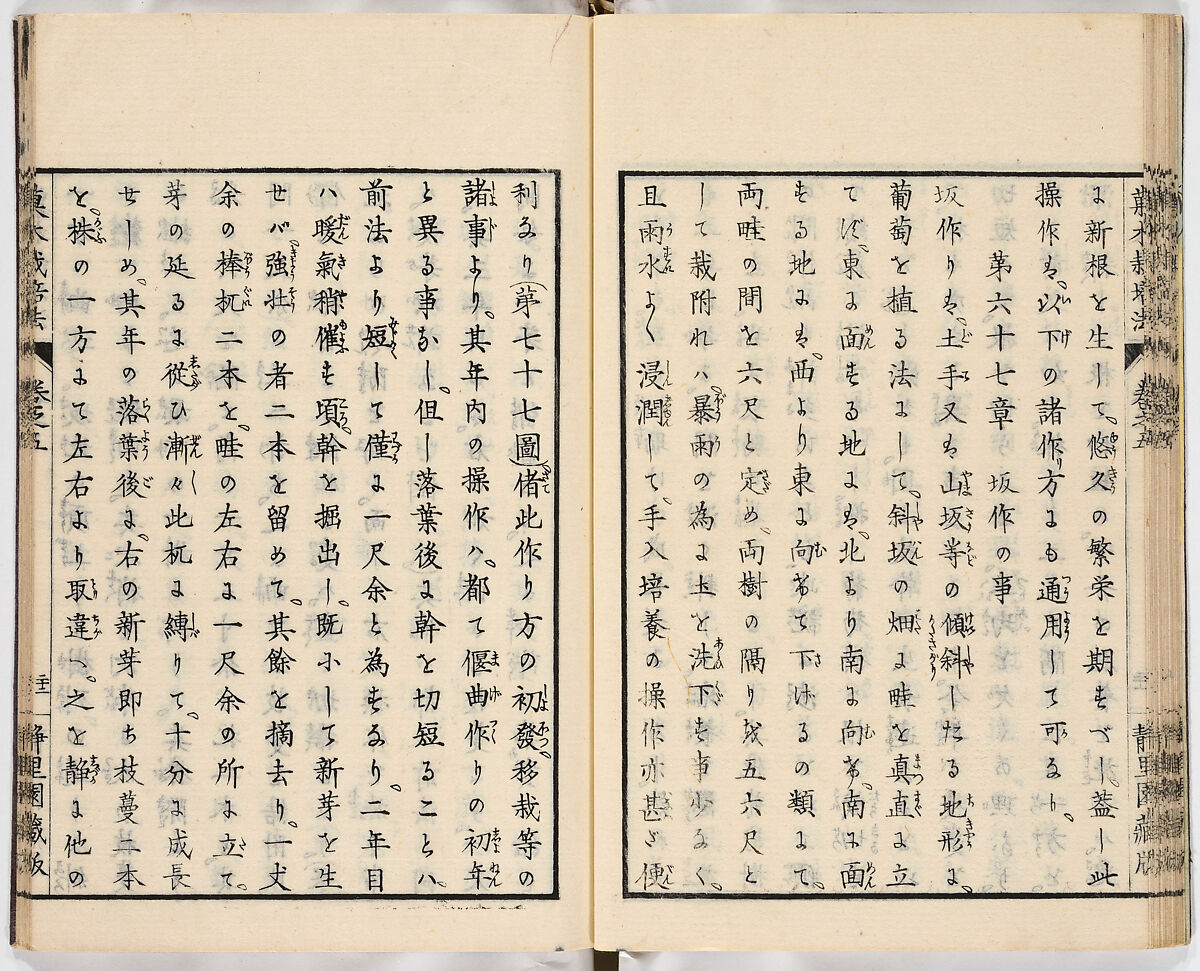 に新根を生して、悠久の繁栄を期すべし蓋し此
操作は、以下の諸作り方にも通用して可なり。
第六十七章 坂作の事
坂作りは、土手又は山坂等の傾斜したる地形に、
葡萄を植る法にして、斜坂の畑に畦を真直に立
て、東に面する地には、北より南に向け、南に面
する地には、西より東に向けて下ける類にて、
両畦の間を六尺と定め、両樹の隔りを五六尺と
して栽附れハ、暴雨の為に土を洗下す事少なく、
且雨水よく浸潤して、手入培養の操作亦甚だ便
利なり(第七十七圖)偖此作り方の初發、移栽等の
諸事より、其年内の操作ハ、都て偃曲作りの初年
と異る事なし、但し落葉後に幹を切短ることハ、
前法より短くして僅に一尺余と為すなり、二年目
ハ暖氣稍催す頃、幹を掘出し、既にして新芽を生
せバ、強壮の者二本を留めて、其餘を摘去り、一丈
余の棒杭二本を、畦の左右に一尺余の所に立て、
芽の延るに從ひ漸々此杭に縛りて、十分に成長
せしめ、其年の落葉後に、右の新芽即ち枝蔓二本
を、株の一方にて左右より取違へ、之を静に他の
菓木栽培法 卷之五 静里園藏版